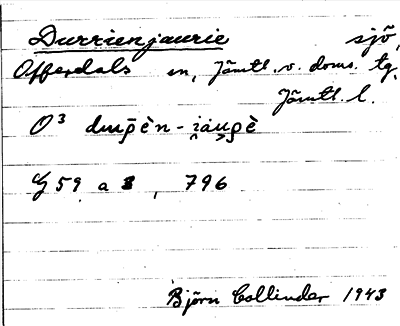 Durrienjaurie sjö,
Offerdals sn, Jämtl. v. doms. tg.
Jämtl. l.
O³
G 59 a 3, 796
Björn Collinder 1943